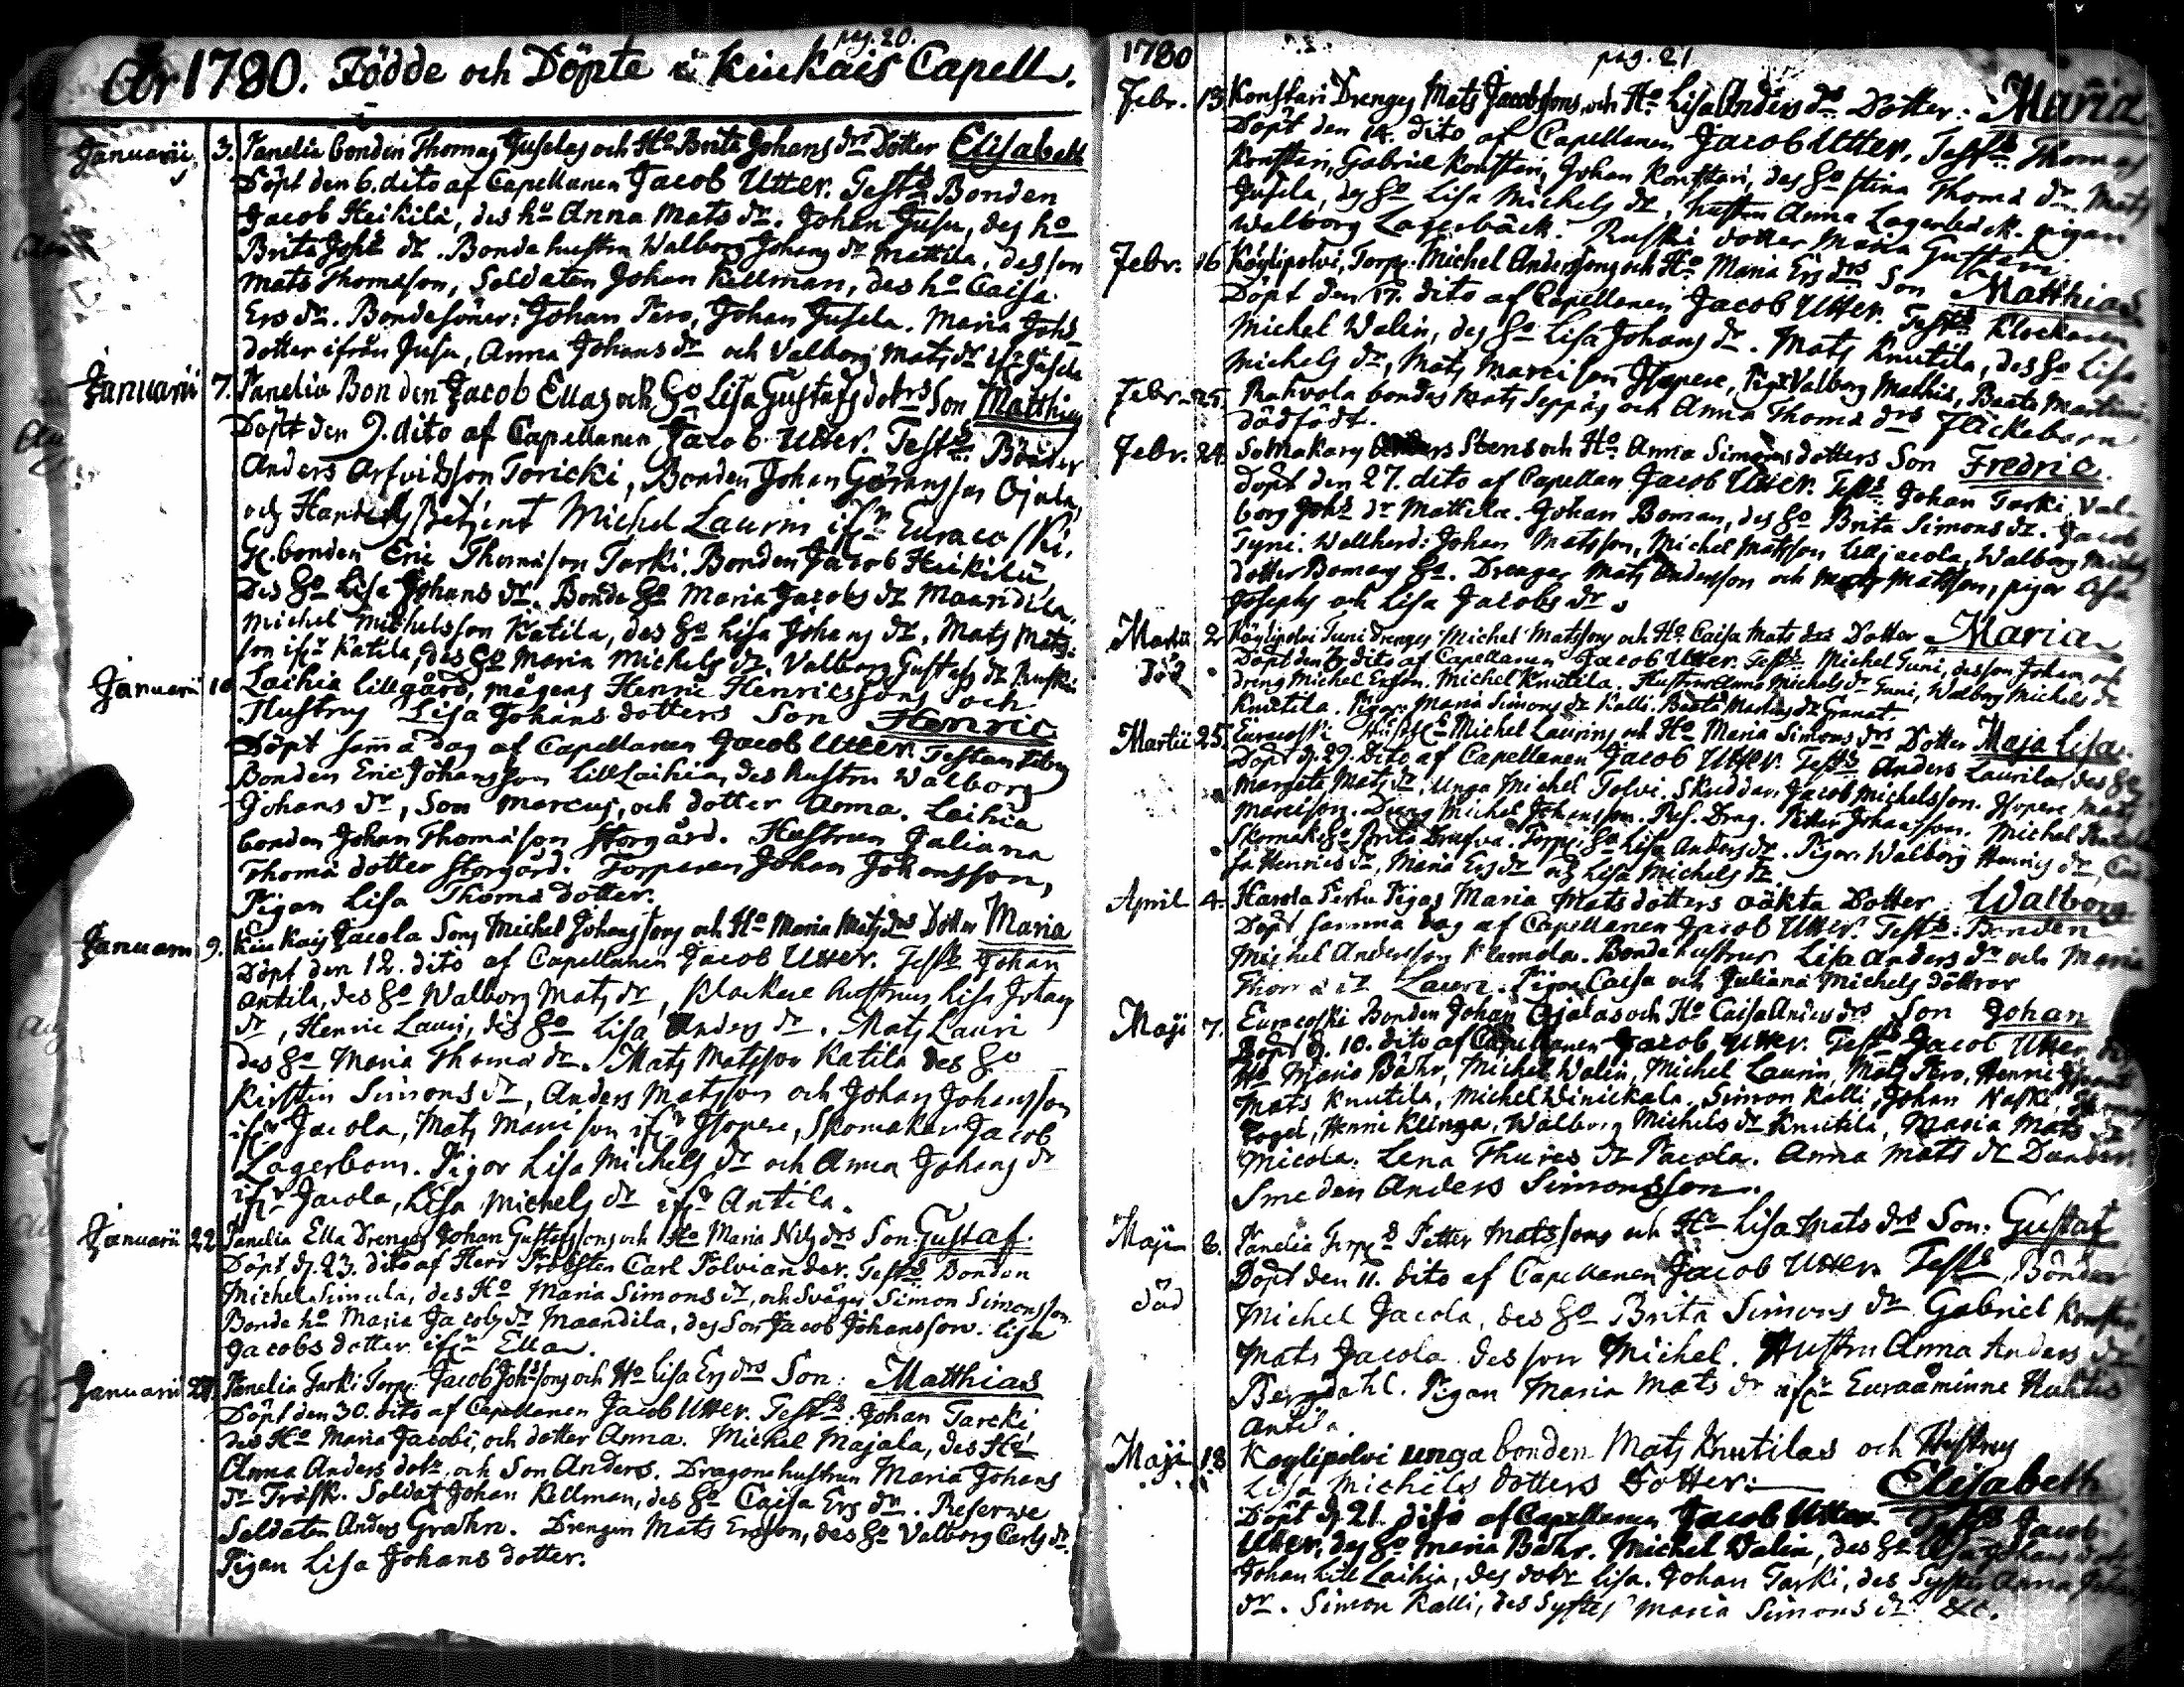 pag. 20.
År 1780. Födde och Döpte i Kiukais Capell.
Januarii 3. Panelia bonden Thomas Juselas och Ho Brita Johans drs Dotter Elisabeth
Döpt den 6. dito af Capellanen Jacob Utter. Test: Bonden
Jacob Heikilä, des ho Anna Mats dr. Johan Jusu, des ho
Brita Joh: dr. Bondehustrun Walborg Johans dr Mattila, des son
Mats Thomasson, Soldaten Johan Kellman, des ho Caisa
Ers dr. Bondesöner: Johan Pero, Johan Jusela. Maria Johs
dotter ifrån Jusu, Anna Johans dr och Valborg Mats dr ifr Jusela
Januarii 7. Panelia Bonden Jacob Ellas och Ho Lisa Gustafs dotrs Son Matthias
Döpt den 9. dito af Capellanen Jacob Utter. Test: Bönder
Anders Arfvidsson Toricki, Bonden Johan Göransson Ojala,
och Handels Betjent Michel Laurin ifrn Euracoski.
bonden Eric Thomasson Tarki. Bonden Jacob Heikilä
Des Ho Lisa Johans dr. Bonde Ho Maria Jacobs dr Maandila.
Michel Michelsson Katila, des Ho Lisa Johans dr, Mats Mats-
son ifr Katila, des Ho Maria Michels dr. Valborg Gustafs dr Ruski
Januarii 10 Laihia Lillgård, mågens Henric Henricssons och
Hustrus Lisa Johans dotters Son Henric
Döpt samma dag af Capellanen Jacob Utter. Testantibus
Bonden Eric Johansson Lill Laihia, des Hustru Walborg
Johans dr, Son Marcus, och dotter Anna. Laihia
bonden Johan Thomasson Storgård. Hustrun Juliana
Thoma dotter Storgård. Torparen Johan Johansson,
Pigan Lisa Thoma dotter.
Januarii 9. Kiukais Jacola Sons Michel Johanssons och Ho Maria Mats drs Dotter Maria
Döpt den 12. dito af Capellanen Jacob Utter. Test: Johan
Antila, des Ho Walborg Mats dr, Klockare hustrun Lisa Johans
dr, Henric Lauri, des Ho Lisa Anders dr. Mats Lauri
des Ho Maria Thoma dr. Mats Matsson Katila des Ho
Kirstin Simons dr, Anders Matsson och Johan Johansson
ifr Jacola, Mats Marcisson ifr Isopere, Skomakar Jacob
Lagerbom. Pigor Lisa Michels dr och Anna Johans dr
ifr Jacola, Lisa Michels dr ifr Antila.
Januarii 22 Panelia Ella Drengs Johan Gustafssons och Ho Maria Nils drs Son: Gustaf.
Döpt d. 23. dito af Herr Probsten Carl Polviander. Test: Bonden
Michel Simula, des Ho Maria Simons dr, och Svåger Simon Simonsson
Bonde ho Maria Jacobs dr Maandila, des Son Jacob Johansson. Lisa
Jacobs dotter ifr Ella.
Januarii 27. Panelia Tarki Torp: Jacob Johssons och Ho Lisa Ers drs Son: Matthias
Döpt den 30. dito af Capellanen Jacob Utter. Test: Johan Tarcki
des Ho Maria Jacobs, och dotter Anna. Michel Majala, des Ho
Anna Anders dotr, och Son Anders. Dragonehustrun Maria Johans
dr Träsk. Soldat Johan Kellman, des Ho Caisa Ers dr. Reserwe
Soldaten Anders Grahn. Drengen Mats Ersson, des Ho Valborg Carls dr.
Pigan Lisa Johans dotter.
1780 pag. 21
Febr. 13. Konstari Drenges Mats Jacobssons och Ho Lisa Anders drs Dotter: Maria
Döpt den 14. dito af Capellanen Jacob Utter. Test: Thomas
Konstari, Gabriel Konstari, Johan Konstari, des Ho Stina Thoma dr. Mats
Jusela, des Ho Lisa Michels dr, hustru Anna Lagerbäck. pigan
Walborg Lagerbäck. Ruski dotter Maria Gustafs
Febr. 16 Köylipolvi, Torp: Michel Anderssons och Ho Maria Ers drs Son Matthias
Döpt den 17. dito af Capellanen Jacob Utter. Test: Klockaren
Michel Walin, des Ho Lisa Johans dr. Mats Knutila, des Ho Lisa
Michels dr, Mats Marcisson Isopere, Pigr Valborg Mathis, Beata Martini.
Febr. 25. Rahvola bondes Mats Seppäs och Anna Thoma drs Flickebarn
dödfödt.
Febr. 24. Somakars Anders Stens och Ho Anna Simons dotters Son Fredric.
Döpt den 27. dito af Capellan Jacob Utter. Test: Johan Tarki, Val-
borg Johs dr Mattila. Johan Boman, des Ho Brita Simons dr. Jacob
Tyni. Wallherd: Johan Matsson, Michel Matsson Lilljacola, Walborg Michels
dotter Bomans Ho. Drengar Mats Andersson och Mats Mattsson, pigor Lisa
Josephs och Lisa Jacobs dr.
Martii 2 Köylipolvi Tuni Drenges Michel Matssons och Ho Caisa Mats drs Dotter Maria
död Döpt den dito af Capellanen Jacob Utter. Test: Michel Tuni, des son Johan, och
dreng Michel Ersson. Michel Knutila. Hustrur Anna Michels dr Tuni, Walborg Michels dr
Knutila. Pigor: Maria Simons dr Kalli. Beata Mathis dr Granat.
Martii 25. Euracoski Michel Laurins och Ho Maria Simons drs Dotter Maja Lisa.
Döpt d. 29. Dito af Capellanen Jacob Utter. Test: Anders Laurila, des Ho
Margeta Mats dr. Unga Michel Polvi. Skräddar. Jacob Michelsson. Isopere Mats
Marcisson. Dreng Michel Johansson. Res. Drag. Petter Johansson. Michel
Skomak: Ho Brita Torp: Ho Lisa Anders dr. Pigor: Walborg Henrics dr, Cai-
sa Henrics dr, Maria Ers dr och Lisa Michels dr.
April 4. Harola Perhu Pigas Maria Mats dotters oäkta Dotter: Walborg
Döpt samma dag af Capellanen Jacob Utter. Test: Bonden
Michel Andersson Klemola. Bondehustrur Lisa Anders dr och Maria
Thoma dr Lauri. Pigor Caisa och Juliana Michels döttrar
Maji 7. Euracoski Bonden Johan Ojalas och Ho Caisa Anders drs Son Johan
Döpt d. 10. dito af Capellanen Jacob Utter. Test: Jacob Utter
Ho Maria Bähr, Michel Walin, Michel Laurin, Mats Pero, Henric
Mats Knutila, Michel Winickala. Simon Kalli, Johan Naski, Thomas
Fogel, Henric Klinga, Walborg Michels dr Knutila, Maria Mats dr
Micola. Lena Thures dr Pacola. Anna Mats dr Dunder.
Smeden Anders Simonsson.
Maji 8. Panelia Torp: Petter Matssons och Ho Lisa Mats drs Son: Gustaf
Döpt den 11. dito af Capellanen Jacob Utter. Test: Bönder
död Michel Jacola, des Ho Brita Simons dr Gabriel Konstari,
Mats Jacola des son Michel. Hustru Anna Anders dr
Bergdahl. Pigan Maria Mats dr ifr Euraåminne Huhtis
Antila.
Maji 18 Koylipolvi unga bonden Mats Knutilas och Hustrus
Lisa Michels dotters Dotter: Elisabeth
Döpt d. 21. dito af Capellanen Jacob Utter. Test: Jacob
Utter, des Ho Maria Bähr. Michel Walin, des Ho Lisa Johans dotr
Johan Lill Laihia, des dotr Lisa. Johan Tarki, des Syster Anna Johans
dr. Simon Kalli, des Syster Maria Simons dr &c.